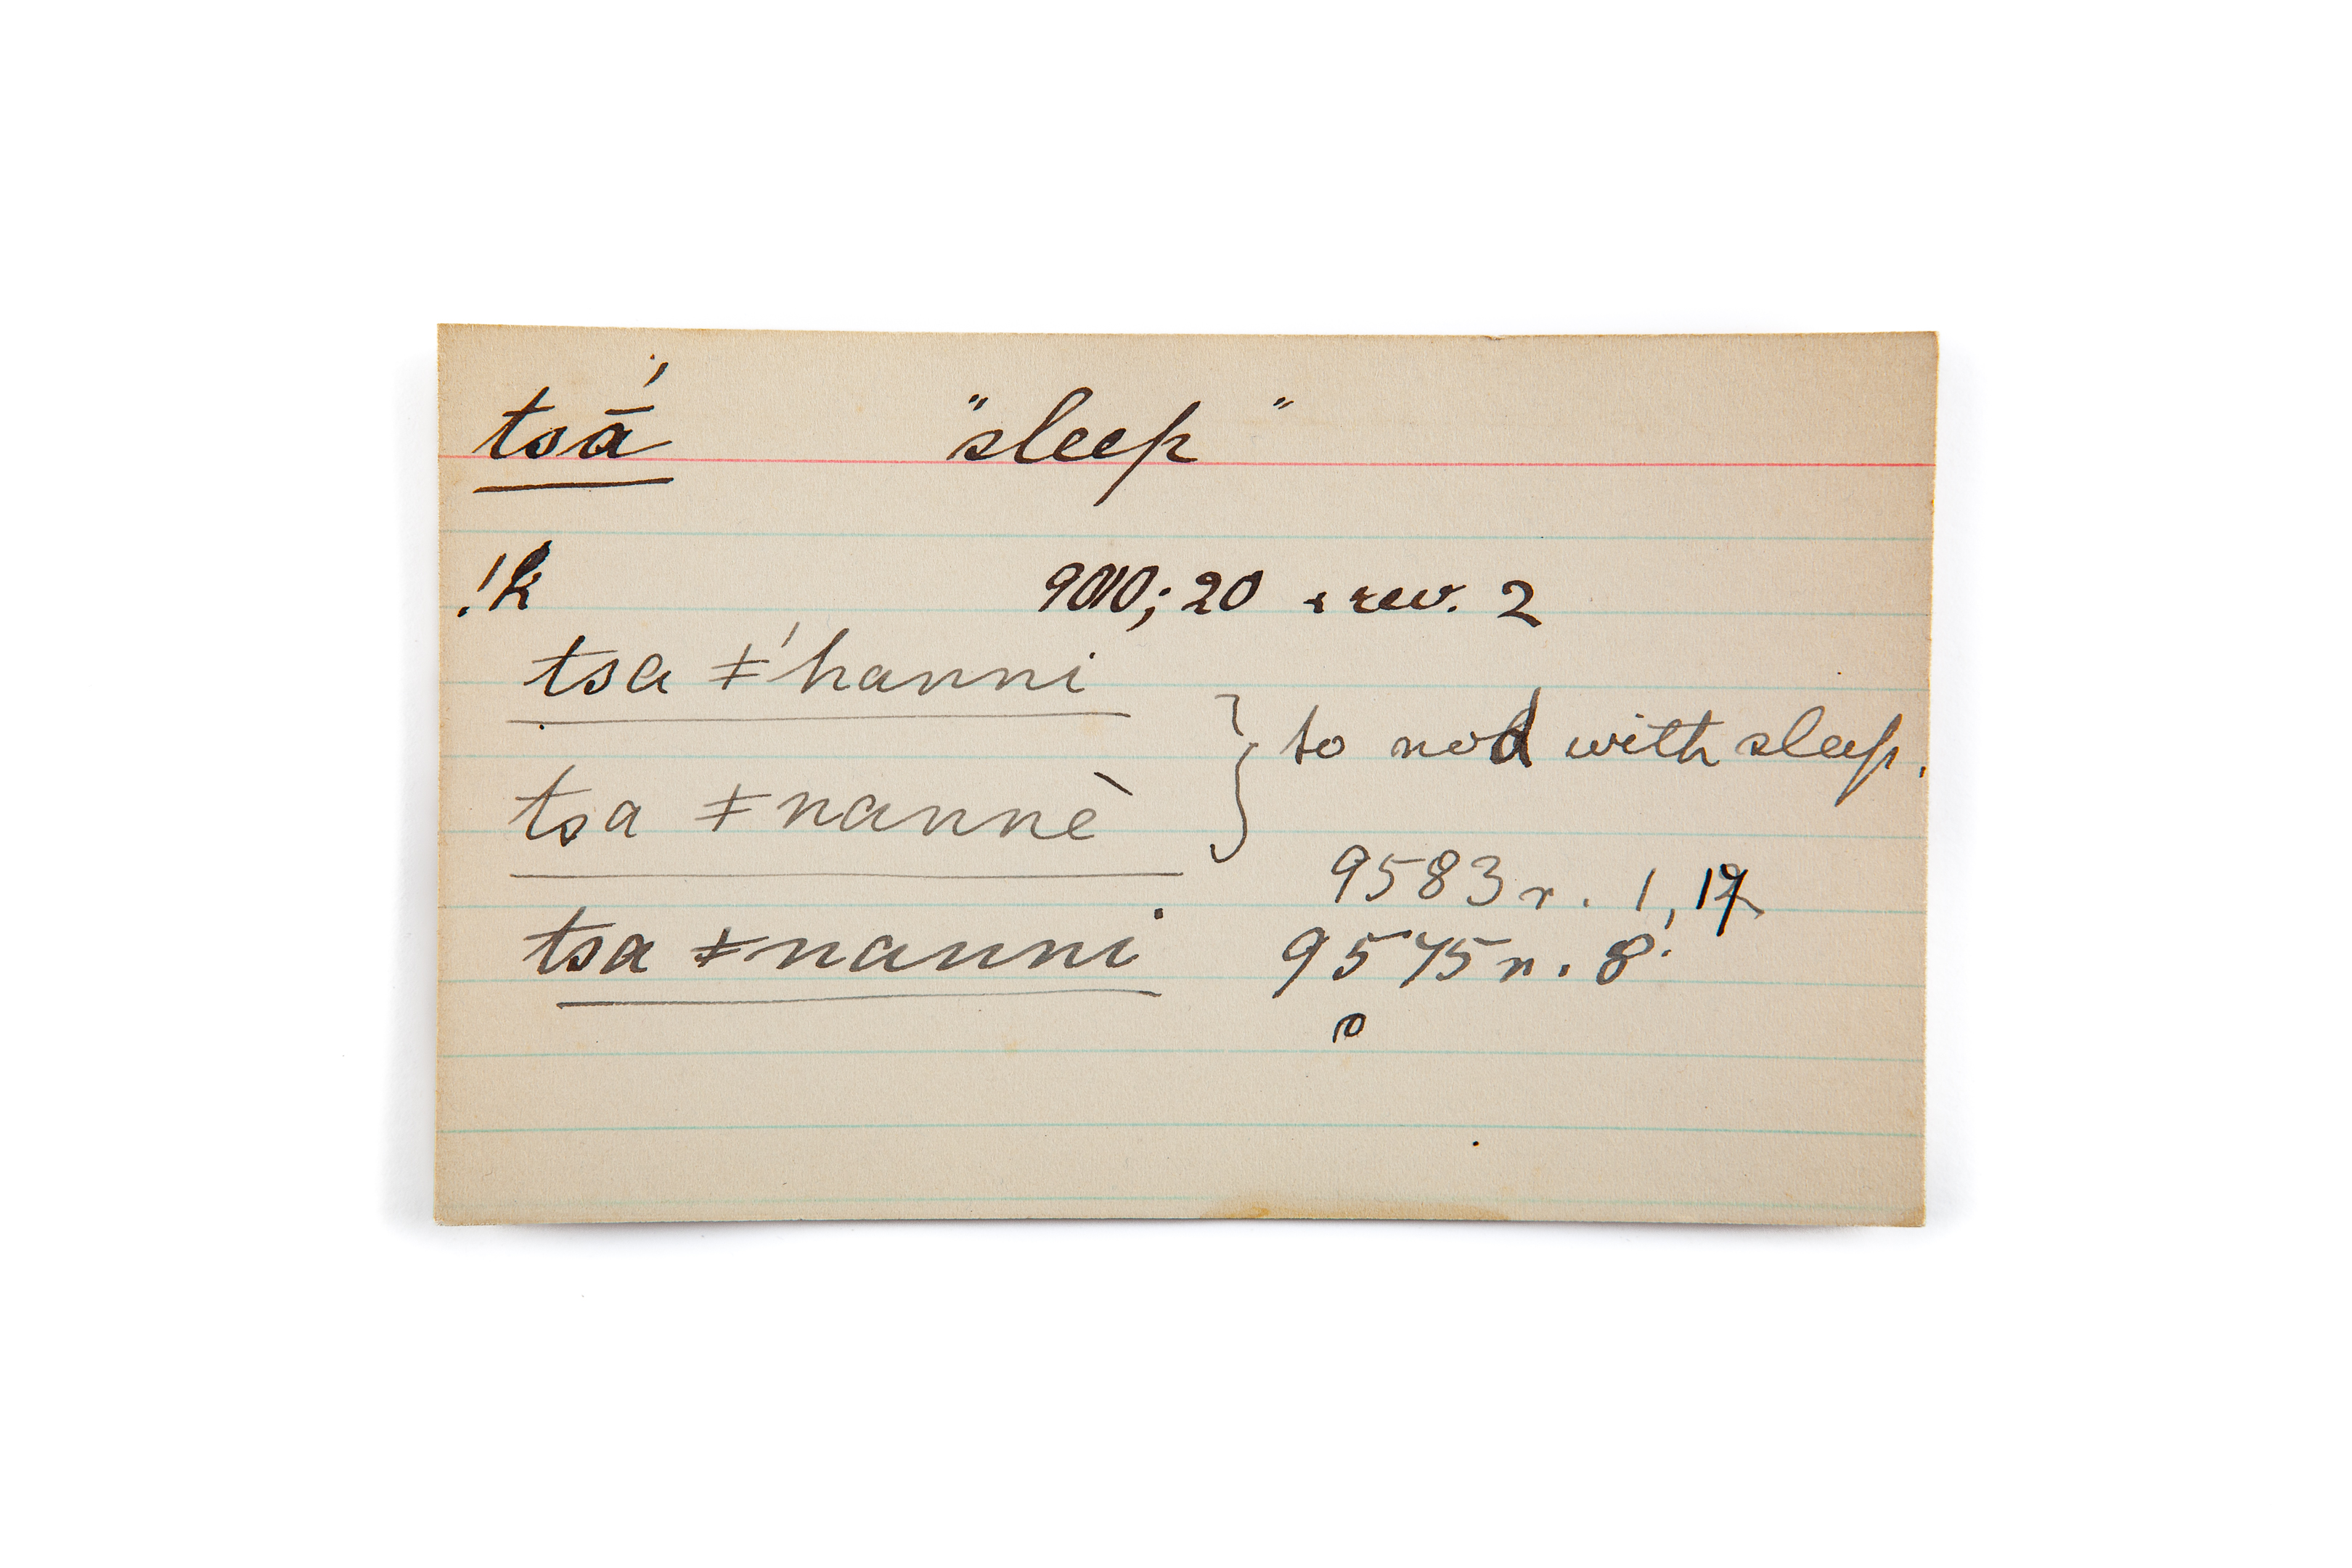 tsā́ "sleep"
!k 900; 20 & rev. 2
tsa ǂ'hanni
} to nod with sleep.
tsa ǂnannè
9583 r. 1, 17
tsa ǂnanni 9575 r. 8'.